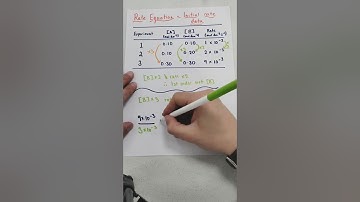 Rate Equation - Initial rate
data
Experiment [A] [B] Rate
1 0.10 0.10 1 × 10⁻³
2 0.10 0.20 2 × 10⁻³
3 0.30 0.30 9 × 10⁻³
[B] × 2 rate ×2
∴ 1st order wrt [B]
[B] × 3
9×10⁻³
3×10⁻³